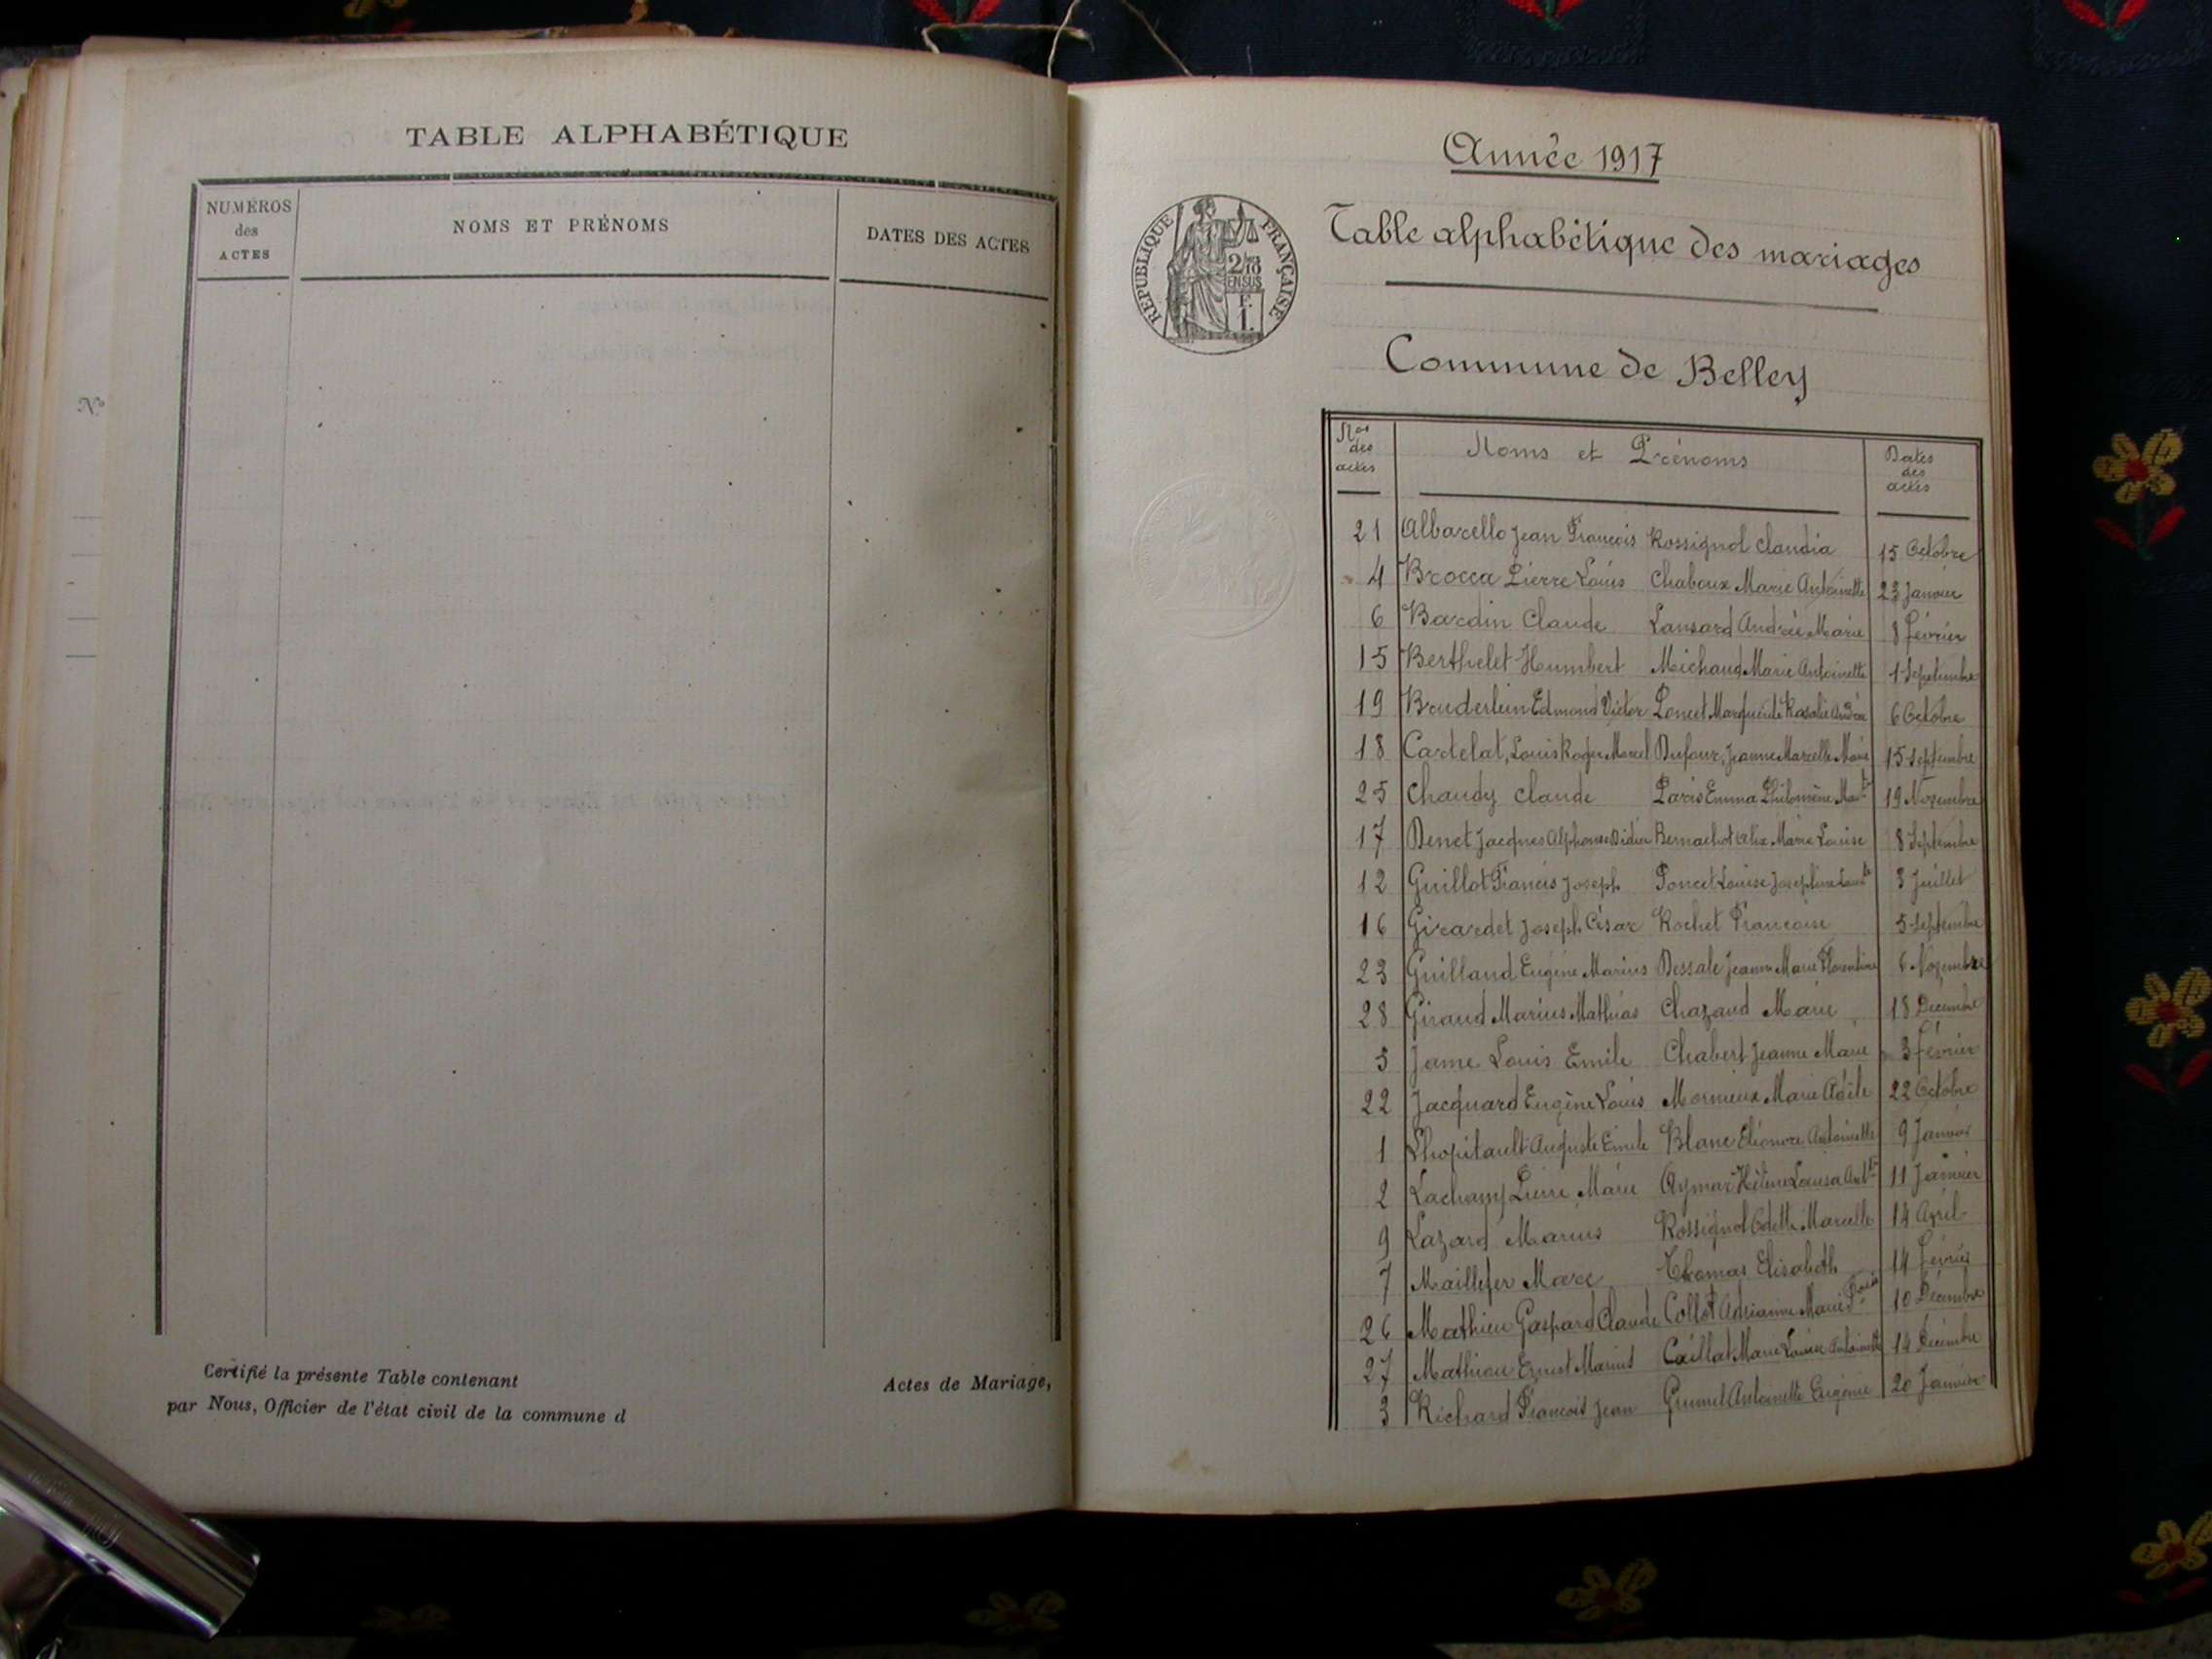 TABLE ALPHABÉTIQUE
NUMÉROS
des
ACTES
NOMS ET PRÉNOMS
DATES DES ACTES
Certifié la présente Table contenant Actes de Mariage,
par Nous, Officier de l'état civil de la commune d
Année 1917
RÉPUBLIQUE FRANÇAISE
2/10
EN SUS
F.
1.
Table alphabétique des mariages
Commune de Belley
Nos
des
actes
Noms et Prénoms
Dates
des
actes
21 Albarello Jean François Rossignol Claudia 15 Octobre
4 Brocca Pierre Louis Chaboux Marie Antoinette 23 Janvier
6 Bardin Claude Lansard Andrée Marie 8 février
15 Berthelet Humbert Michaud Marie Antoinette 1 Septembre
19 Bruderlein Edmond Victor Poncet Marguerite Rosalie Andrée 6 Octobre
18 Cartelat, Louis Roger Marcel Dufour, Jeanne Marcelle Marie 15 Septembre
25 Chaudy Claude Paris Emma Philomène 19 Novembre
17 Benet Jacques Alphonse Didier Bernachot Alix Marie Louise 8 Septembre
12 Guillot Francis Joseph Poncet Louise Joséphine 3 Juillet
16 Girardet Joseph César Rochet Françoise 5 Septembre
23 Guilland Eugène Marius Dessale Jeanne Marie Florentine 6 Novembre
28 Giraud Marius Mathias Chazaud Marie 18 Décembre
5 Jame Louis Emile Chabert Jeanne Marie 3 février
22 Jacquard Eugène Louis Mornieux Marie Adèle 22 Octobre
1 Lhopitault Auguste Emile Blanc Eléonore Antoinette 9 Janvier
2 Lachamp Pierre Marie Aymar Hélène Louisa Antte 11 Janvier
9 Lazard Marius Rossignol Odette Marcelle 14 Avril
7 Maillefer Marc Thomas Elisabeth 14 Février
26 Mathieu Gaspard Claude Collot Adrianne Marie 10 Décembre
27 Mathieu Ernest Marius Caillat Marie Louise Antoinette 14 Décembre
3 Richard François Jean Grumel Antoinette Eugénie 20 Janvier